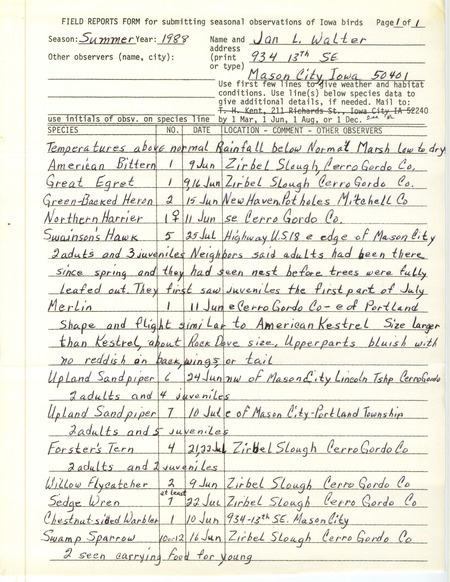 FIELD REPORTS FORM for submitting seasonal observations of Iowa birds Page 1 of 1
Season: Summer Year: 1988 Name and Jan L. Walter
Other observers (name, city): address
(print 934 13th SE
or type) Mason City Iowa 50401
Use first few lines to give weather and habitat
conditions. Use line(s) below species data to
give additional details, if needed. Mail to:
T. H. Kent, 211 Richards St., Iowa City IA 52240
use initials of obsv. on species line by 1 Mar, 1 Jun, 1 Aug, or 1 Dec.
SPECIES NO. DATE LOCATION - COMMENT - OTHER OBSERVERS
Temperatures above normal Rainfall below Normal Marsh low to dry
American Bittern 1 9 Jun Zirbel Slough, Cerro Gordo Co.
Great Egret 1 9,16 Jun Zirbel Slough, Cerro Gordo Co.
Green-Backed Heron 2 15 Jun New Haven Potholes Mitchell Co
Northern Harrier 1♀ 11 Jun se Cerro Gordo Co.
Swainson's Hawk 5 25 Jul Highway U.S.18 e edge of Mason City
2 aduts and 3 juveniles Neighbors said adults had been there
since spring and they had seen nest before trees were fully
leafed out. They first saw juveniles the first part of July
Merlin 11 Jun e Cerro Gordo Co - e of Portland
Shape and flight similar to American Kestrel Size larger
than Kestrel, about Rock Dove size. Upperparts bluish with
no reddish on back, wings, or tail
Upland Sandpiper 6 24 Jun nw of Mason City Lincoln Tshp Cerro Gordo
2 adults and 4 juveniles
Upland Sandpiper 7 10 Jul e of Mason City-Portland Township
2 adults and 5 juveniles
Forster's Tern 4 21,22 Jul Zirbel Slough Cerro Gordo Co
2 adults and 2 juveniles
Willow Flycatcher 2 9 Jun Zirbel Slough Cerro Gordo Co
Sedge Wren at least 7 22 Jul Zirbel Slough Cerro Gordo Co
Chestnut-sided Warbler 1 10 Jun 934-13th SE. Mason City
Swamp Sparrow 10 or 12 16 Jun Zirbel Slough Cerro Gordo Co
2 seen carrying food for young